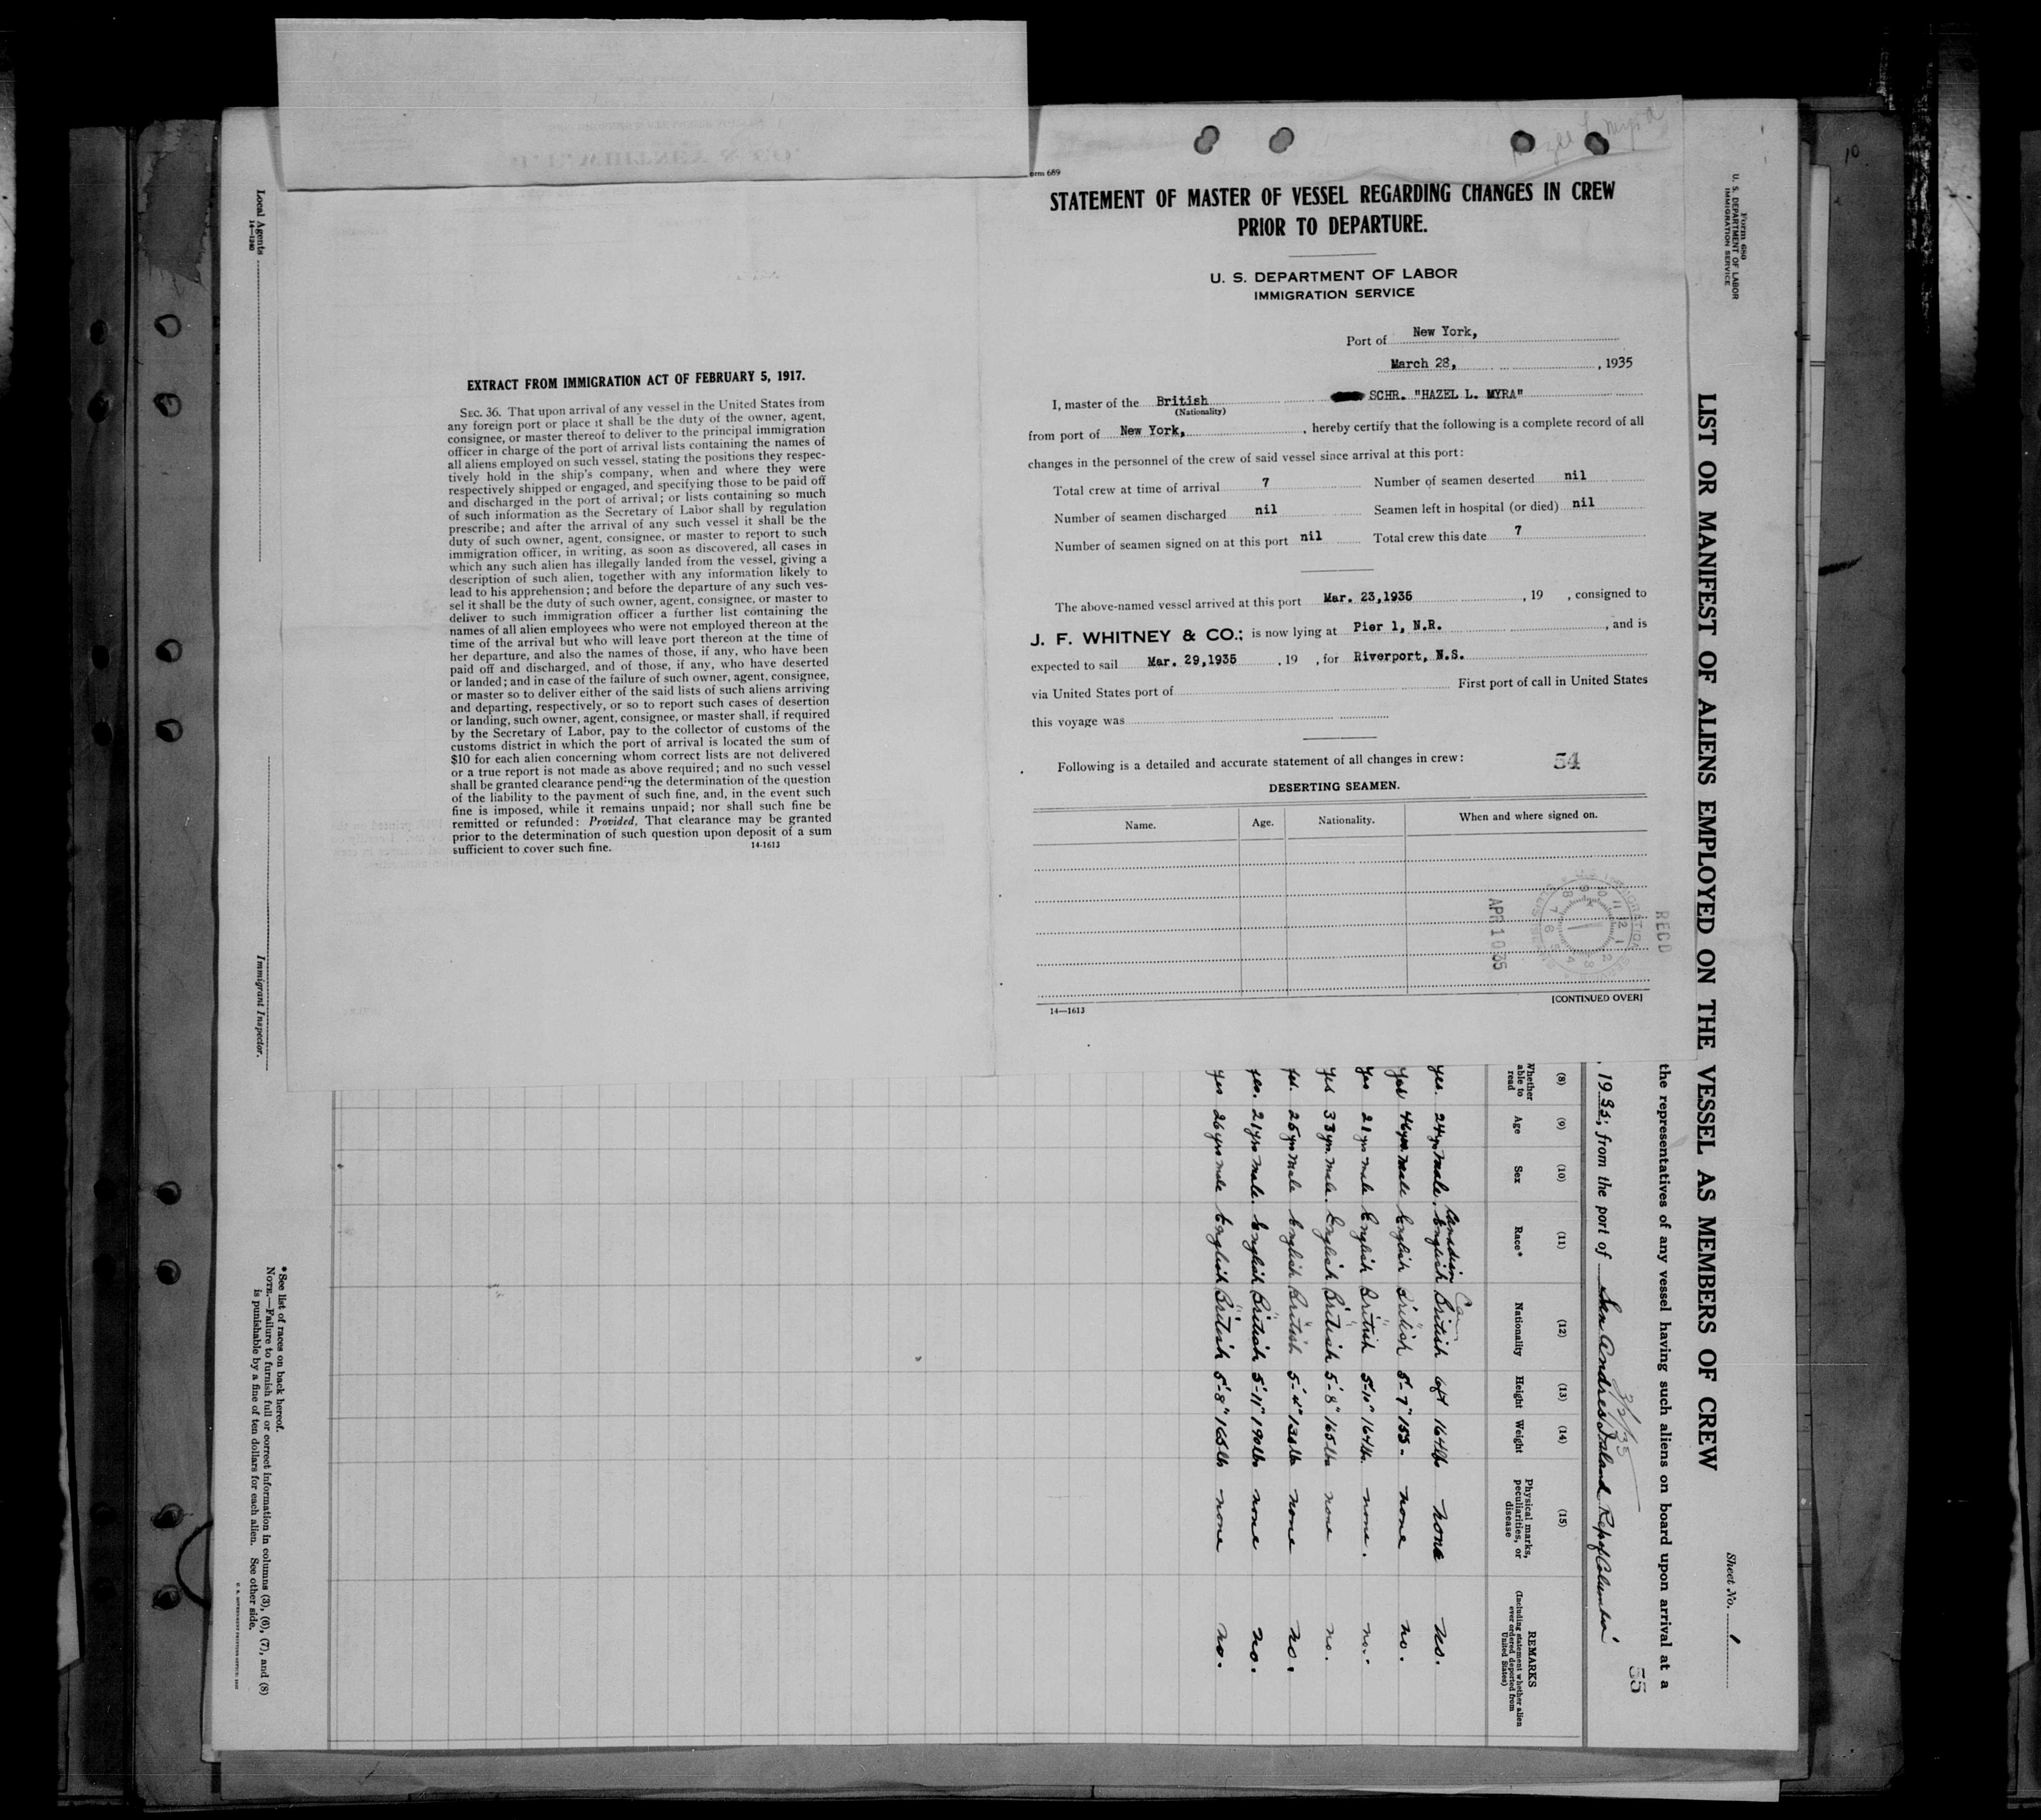 Local Agents
14—1240
Immigrant Inspector.
EXTRACT FROM IMMIGRATION ACT OF FEBRUARY 5, 1917.
SEC. 36. That upon arrival of any vessel in the United States from
any foreign port or place it shall be the duty of the owner, agent,
consignee, or master thereof to deliver to the principal immigration
officer in charge of the port of arrival lists containing the names of
all aliens employed on such vessel, stating the positions they respec-
tively hold in the ship's company, when and where they were
respectively shipped or engaged, and specifying those to be paid off
and discharged in the port of arrival; or lists containing so much
of such information as the Secretary of Labor shall by regulation
prescribe; and after the arrival of any such vessel it shall be the
duty of such owner, agent, consignee, or master to report to such
immigration officer, in writing, as soon as discovered, all cases in
which any such alien has illegally landed from the vessel, giving a
description of such alien, together with any information likely to
lead to his apprehension; and before the departure of any such ves-
sel it shall be the duty of such owner, agent, consignee, or master to
deliver to such immigration officer a further list containing the
names of all alien employees who were not employed thereon at the
time of the arrival but who will leave port thereon at the time of
her departure, and also the names of those, if any, who have been
paid off and discharged, and of those, if any, who have deserted
or landed; and in case of the failure of such owner, agent, consignee,
or master so to deliver either of the said lists of such aliens arriving
and departing, respectively, or so to report such cases of desertion
or landing, such owner, agent, consignee, or master shall, if required
by the Secretary of Labor, pay to the collector of customs of the
customs district in which the port of arrival is located the sum of
$10 for each alien concerning whom correct lists are not delivered
or a true report is not made as above required; and no such vessel
shall be granted clearance pending the determination of the question
of the liability to the payment of such fine, and, in the event such
fine is imposed, while it remains unpaid; nor shall such fine be
remitted or refunded: Provided, That clearance may be granted
prior to the determination of such question upon deposit of a sum
sufficient to cover such fine.
14-1613
orm 689
STATEMENT OF MASTER OF VESSEL REGARDING CHANGES IN CREW
PRIOR TO DEPARTURE.
U. S. DEPARTMENT OF LABOR
IMMIGRATION SERVICE
Port of New York,
March 28, , 1935
I, master of the British SCHR. "HAZEL L. MYRA"
(Nationality)
from port of New York, , hereby certify that the following is a complete record of all
changes in the personnel of the crew of said vessel since arrival at this port:
Total crew at time of arrival 7 Number of seamen deserted nil
Number of seamen discharged nil Seamen left in hospital (or died) nil
Number of seamen signed on at this port nil Total crew this date 7
The above-named vessel arrived at this port Mar. 23,1935 , 19 , consigned to
J. F. WHITNEY & CO.; is now lying at Pier 1, N.R. , and is
expected to sail Mar. 29,1935 , 19 , for Riverport, N.S.
via United States port of First port of call in United States
this voyage was
Following is a detailed and accurate statement of all changes in crew:
54
DESERTING SEAMEN.
Name. Age. Nationality. When and where signed on.
RECD
APR 10 35
[CONTINUED OVER]
14—1613
10
Form 680
U. S. DEPARTMENT OF LABOR
IMMIGRATION SERVICE
Sheet No. 1
LIST OR MANIFEST OF ALIENS EMPLOYED ON THE VESSEL AS MEMBERS OF CREW
the representatives of any vessel having such aliens on board upon arrival at a
55
, 1935, from the port of San Andres Island Rep of Columbia
(8) (9) (10) (11) (12) (13) (14) (15)
Whether able to read Age Sex Race* Nationality Height Weight Physical marks, peculiarities, or disease REMARKS (Including statement whether alien ever ordered deported from United States)
Canadian Can
yes. 24 yrs male. English British 6ft 164lbs none no.
yes 46 yrs male English British 5-7" 155- none no.
yes 21 yrs male English British 5-10" 164lbs. none. no.
yes 33 yrs male. English British 5-8" 165lbs none no.
yes. 25 yrs male English British 5-4" 130lb none no.
yes. 21 yrs male. English British 5-11" 190lbs none no.
yes 26 yrs male English British 5-8" 165lb none no.
*See list of races on back hereof.
NOTE.—Failure to furnish full or correct information in columns (3), (6), (7), and (8)
is punishable by a fine of ten dollars for each alien. See other side.